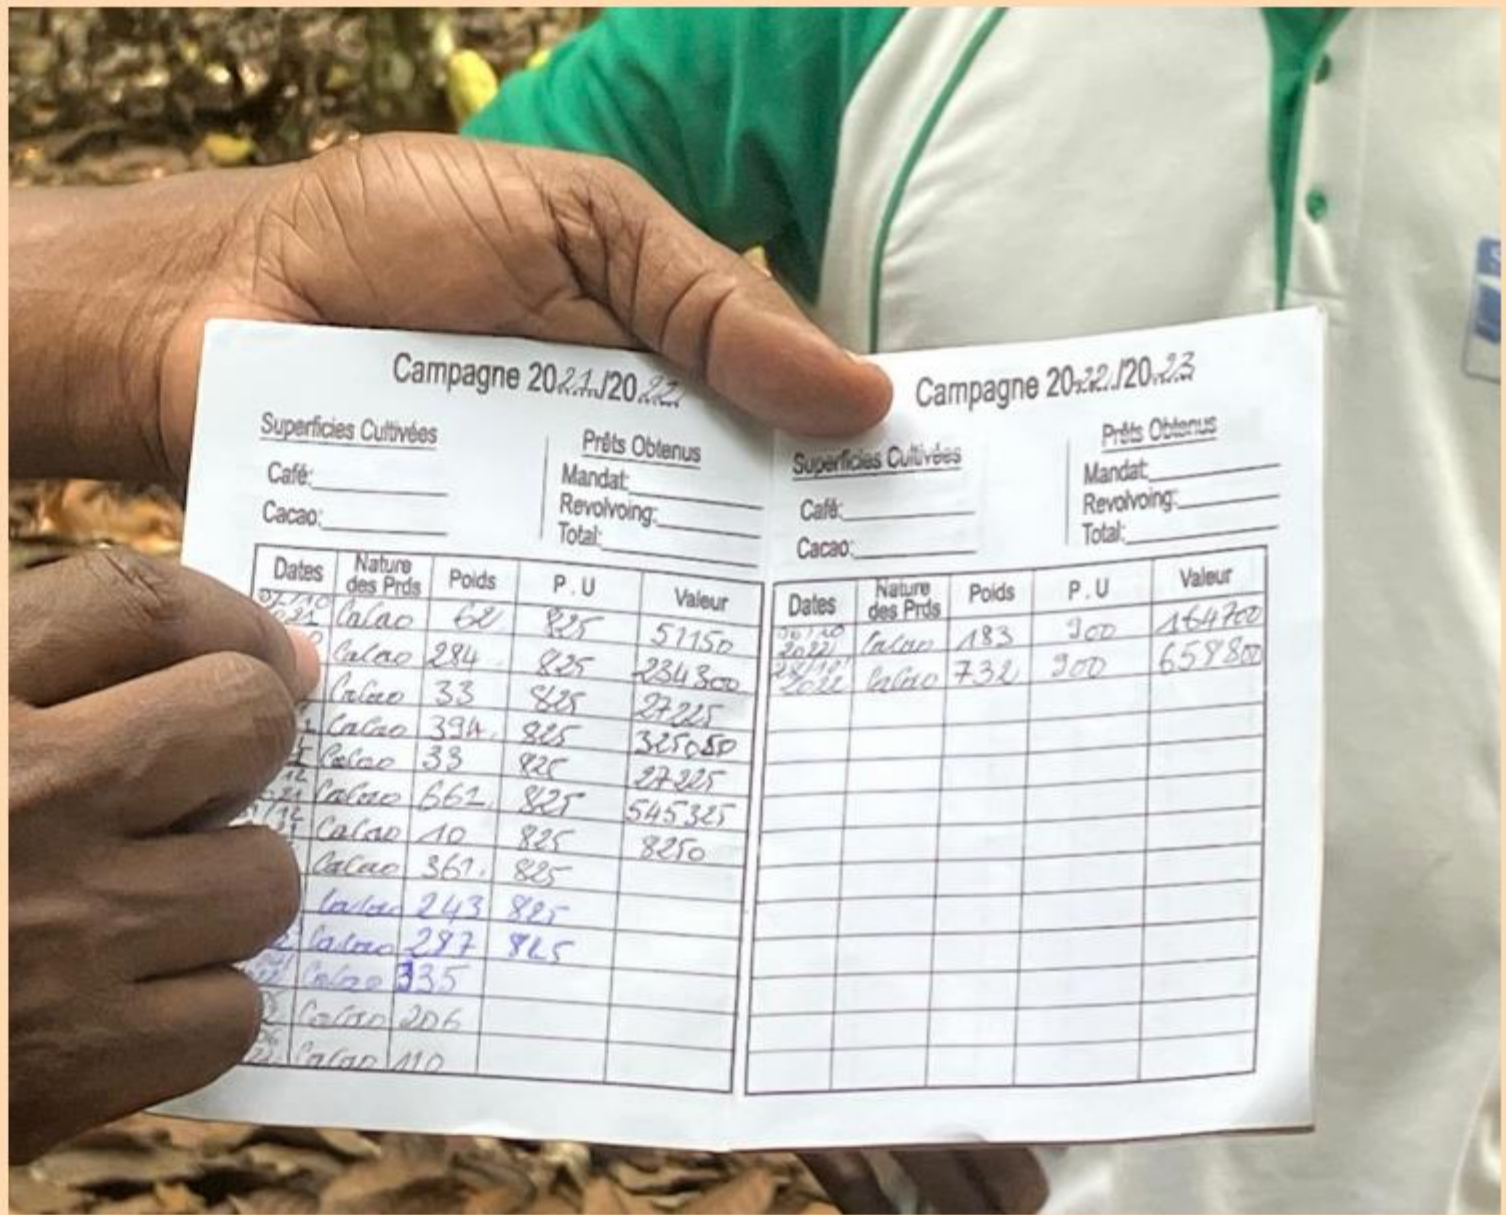 Campagne 2021/2022
Superficies Cultivées
Prêts Obtenus
Café:
Mandat:
Cacao:
Revolvoing:
Total:
Dates Nature des Prds Poids P.U Valeur
07/10 21 Cacao 62 825 51150
Cacao 284 825 234300
Cacao 33 825 27225
Cacao 394 825 325050
Cacao 33 825 27225
Cacao 661 825 545325
Cacao 10 825 8250
Cacao 361 825
Cacao 243 825
Cacao 287 825
Cacao 335
Cacao 206
Cacao 110
Campagne 2022/2023
Superficies Cultivées
Prêts Obtenus
Café:
Mandat:
Cacao:
Revolvoing:
Total:
Dates Nature des Prds Poids P.U Valeur
2022 Cacao 183 900 164700
2022 Cacao 732 900 658800